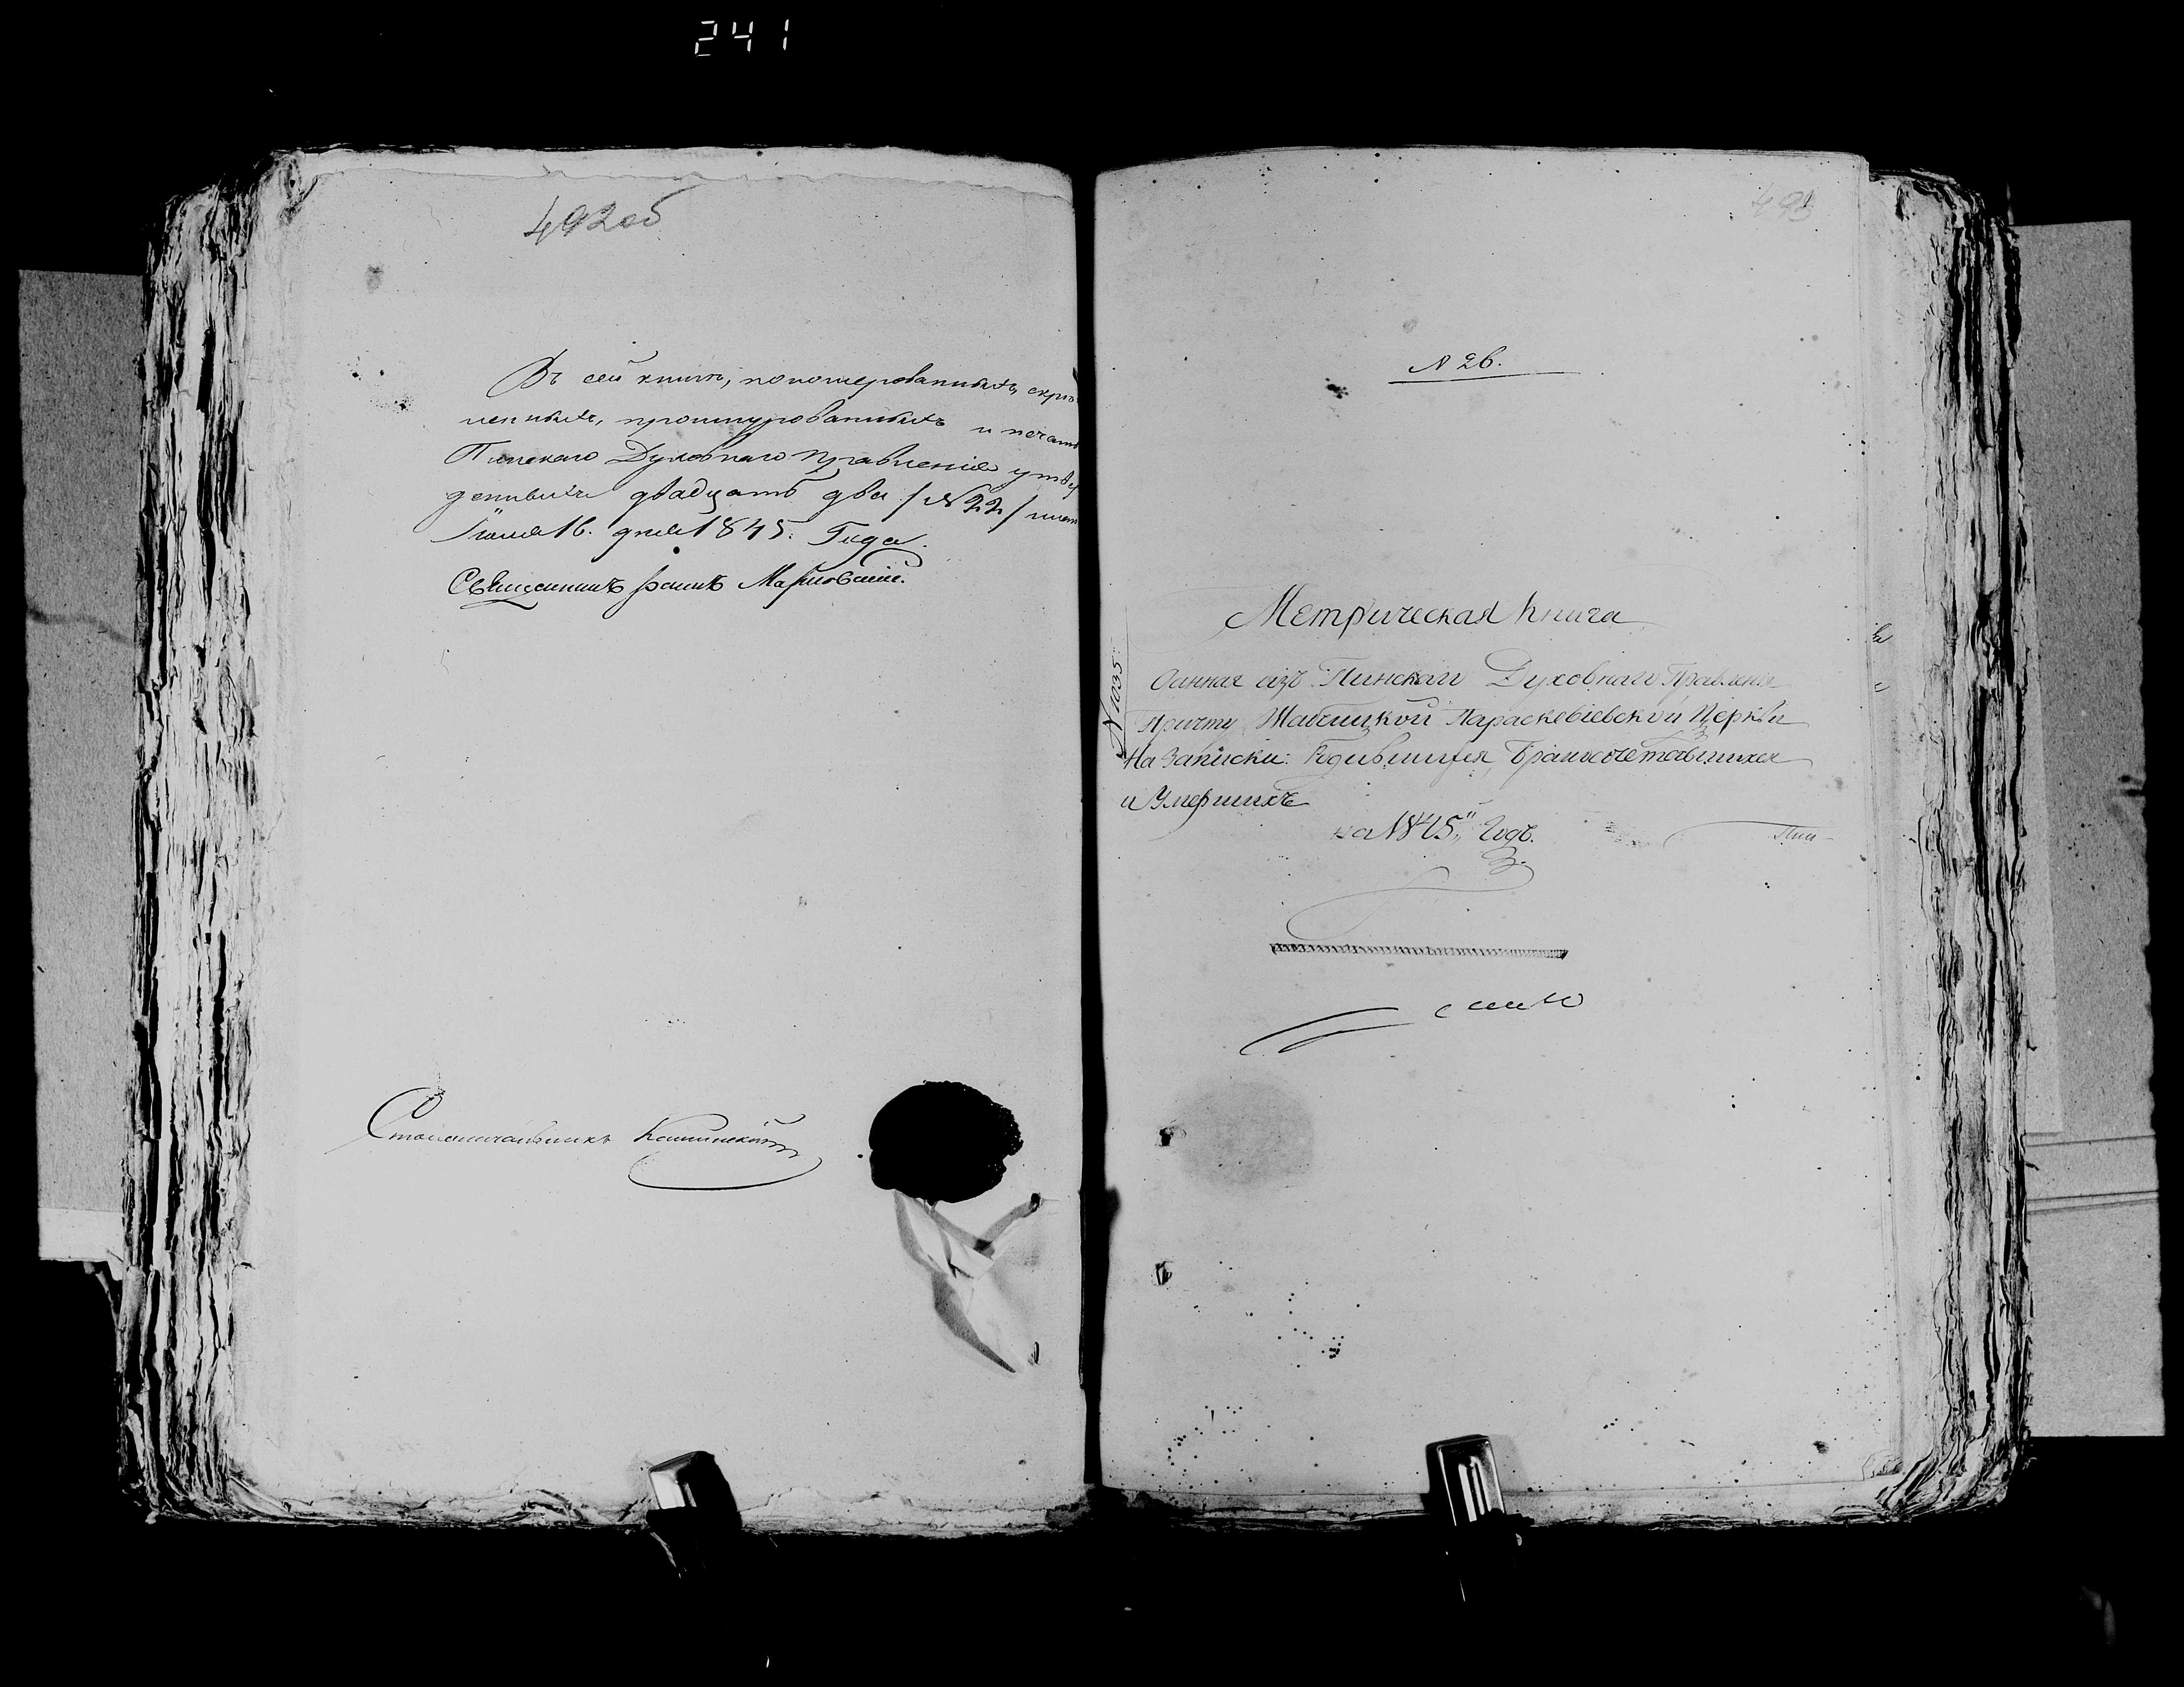 241
492об
Въ сей книгѣ, пономерованныхъ, скрѣ
пенныхъ, прошнурованныхъ и печать
Пинскаго Духовнаго Правленія утвер
денныхъ двадцать два / №22 / лист
Іюля 16. дня 1845. Года.
Священникъ Іоаннъ
Столоначальникъ
493
№ 26.
Метрическая Книга
№ 1035
Данная изъ Пинскаго Духовнаго Правленія
Причту Параскевіевской Церкви
На Записки: Родившихся, Бракосочетавшихся
и Умершихъ
на 1845" Годъ.